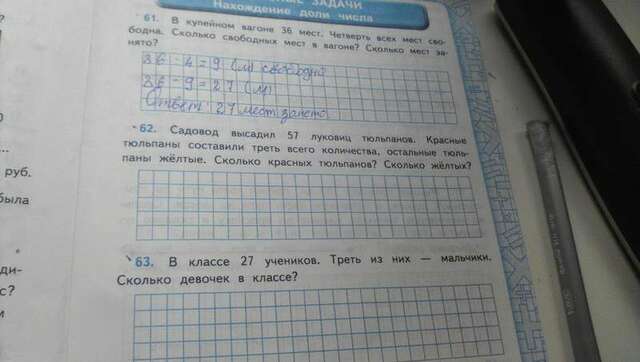 ЗАДАЧИ
Нахождение доли числа
61. В купейном вагоне 36 мест. Четверть всех мест сво-
бодна. Сколько свободных мест в вагоне? Сколько мест за-
нято?
36 : 4 = 9 (м) свободно
36 - 9 = 27 (м)
Ответ: 27 мест занято
62. Садовод высадил 57 луковиц тюльпанов. Красные
тюльпаны составили треть всего количества, остальные тюль-
паны жёлтые. Сколько красных тюльпанов? Сколько жёлтых?
63. В классе 27 учеников. Треть из них — мальчики.
Сколько девочек в классе?
руб.
была
ди-
с?
и